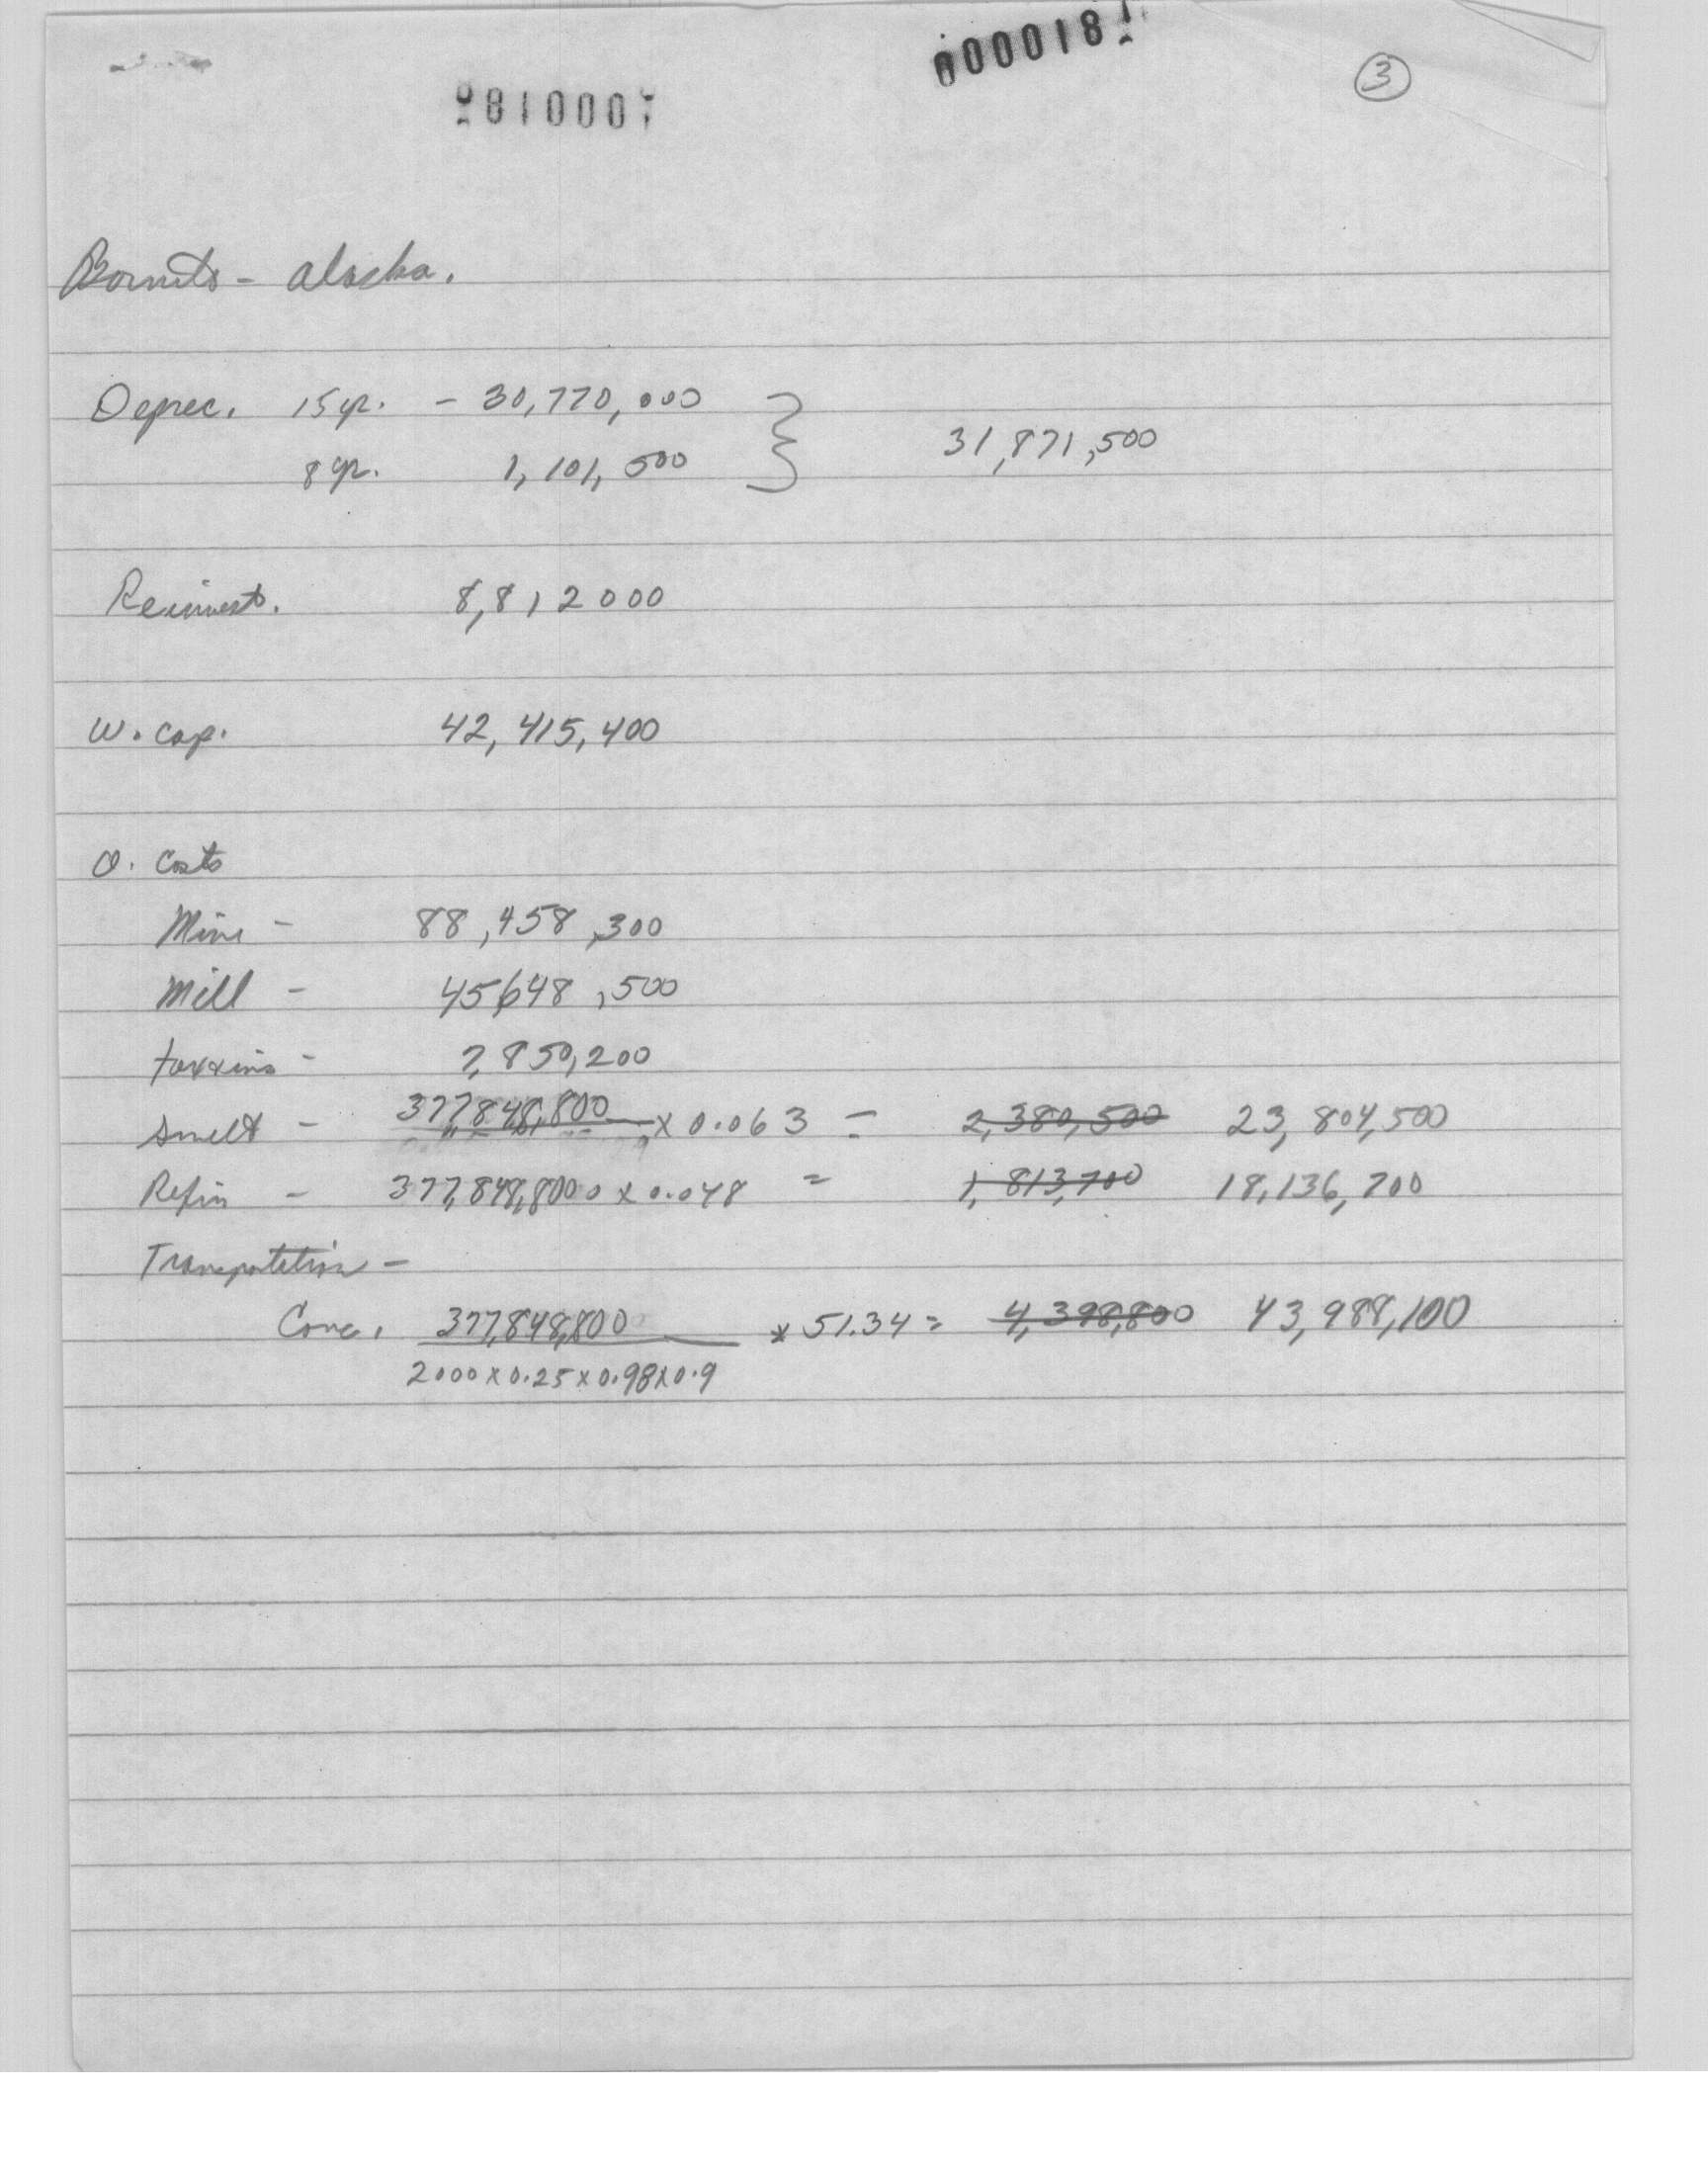 000018
③
Bornite - Alaska.
Deprec. 15 yr. - 30,770,000
31,871,500
8 yr. 1,101,500
Reinvest. 8,812000
W. Cap. 42,415,400
O. Costs
Mine - 88,458,300
Mill - 45648,500
- 2,850,200
Smelt - 377,848,800 x 0.063 = 2,380,500 23,804,500
Refin - 377,848,800 x 0.048 = 1,813,700 18,136,700
Transportation -
Conc. 377,848,800 x 51.34 = 4,398,800 43,988,100
2000 x 0.25 x 0.98 x 0.9